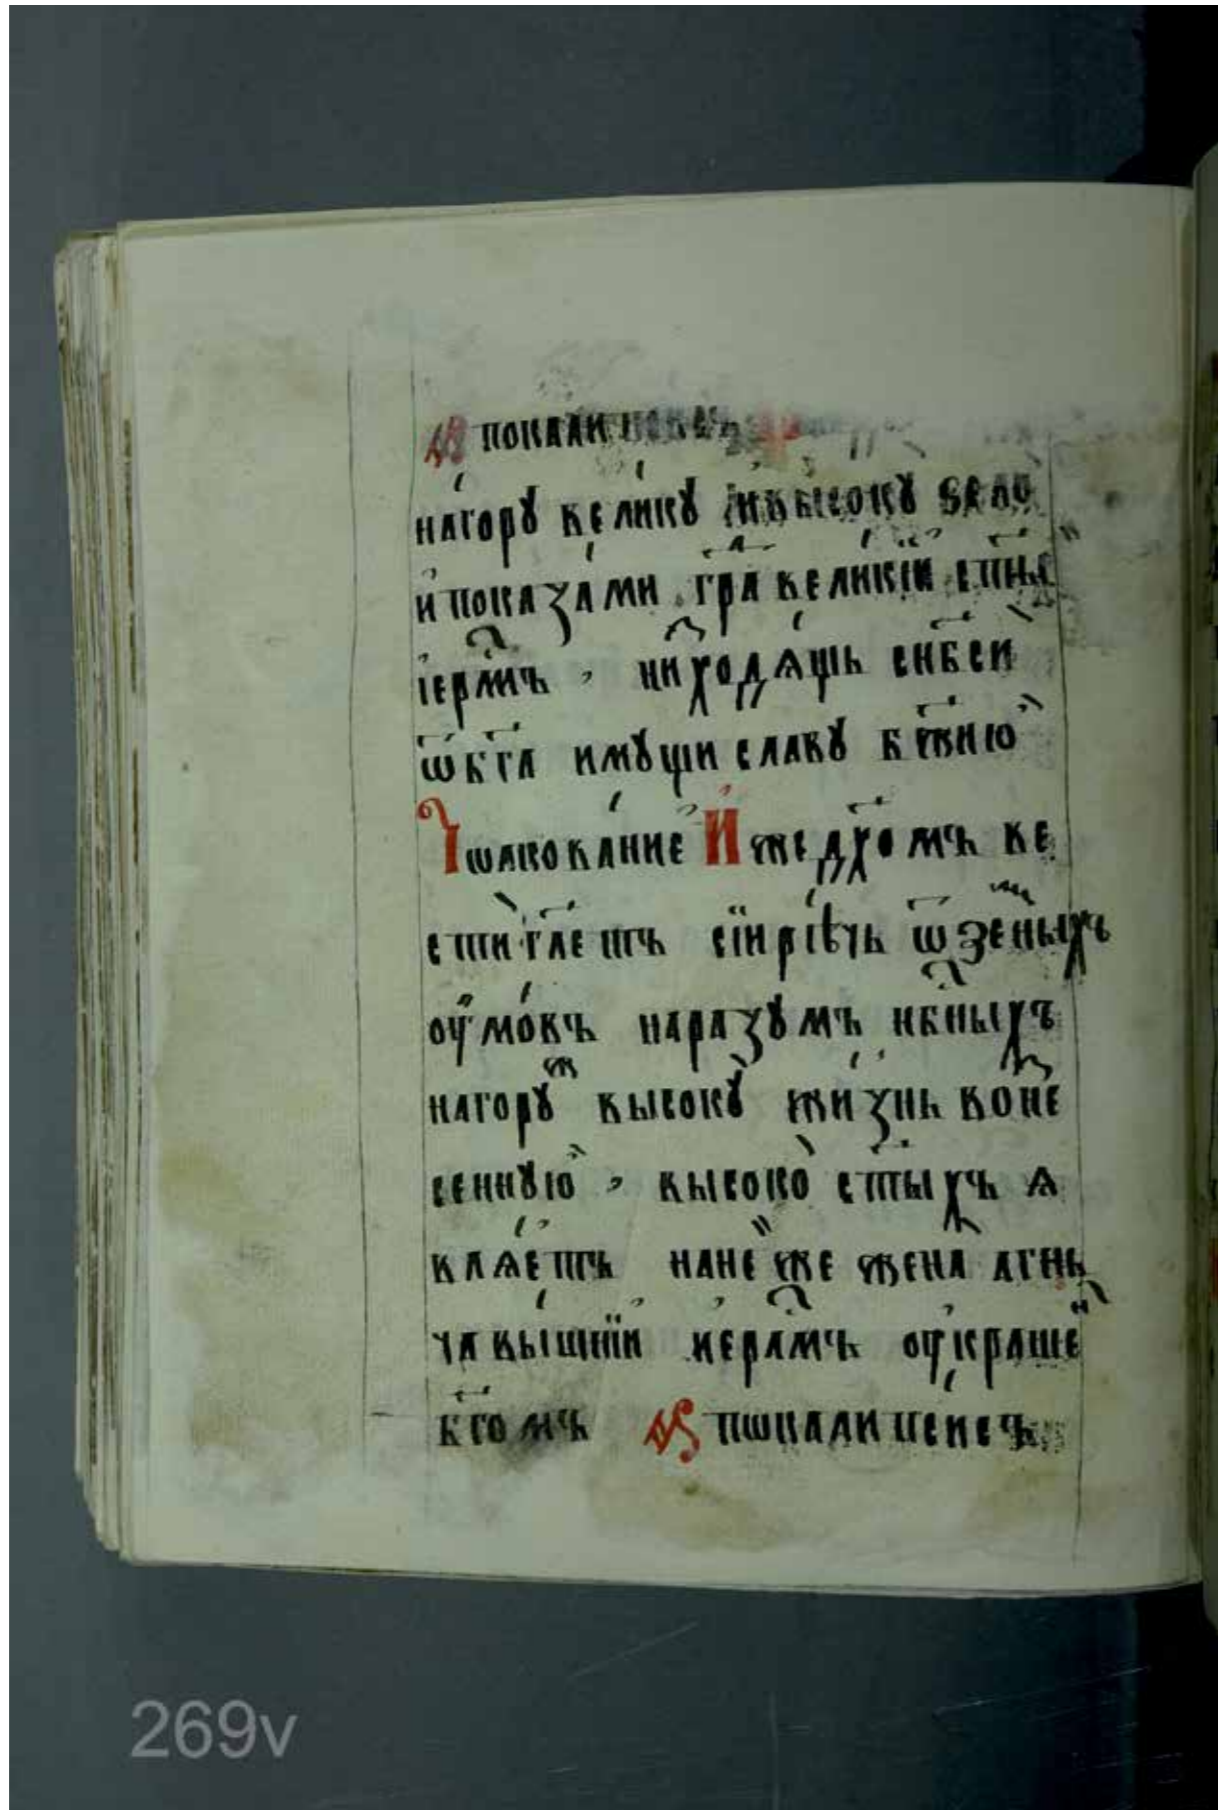 Апокалипсисъ
нагорꙋ великꙋ ивысокꙋ ѕело
ипоказами гра҇ⷣ великїи ст҃ыⷤ
іер҇лⷭ҇мъ , ниⷥходѧщь снб҃си
ѿб҃га имꙋщи славꙋ бж҃ию
Тⷪлкование Иже дх҃омъ ве
сти гл҃етъ сїирѣчь ѿзеⷨныхъ
оу҆мовъ наразꙋмъ нбⷭ҇ныхъ
нагорꙋⷤ высокꙋ жизнь воне
сеннꙋю , высоко ст҃ыхъ ѧ
влѧетъ нанеиже жена агнь
ча вышнїи иерⷭ҇лмъ оукрашеⷩ
бг҃омъ Апѡкалипсисъ
269v